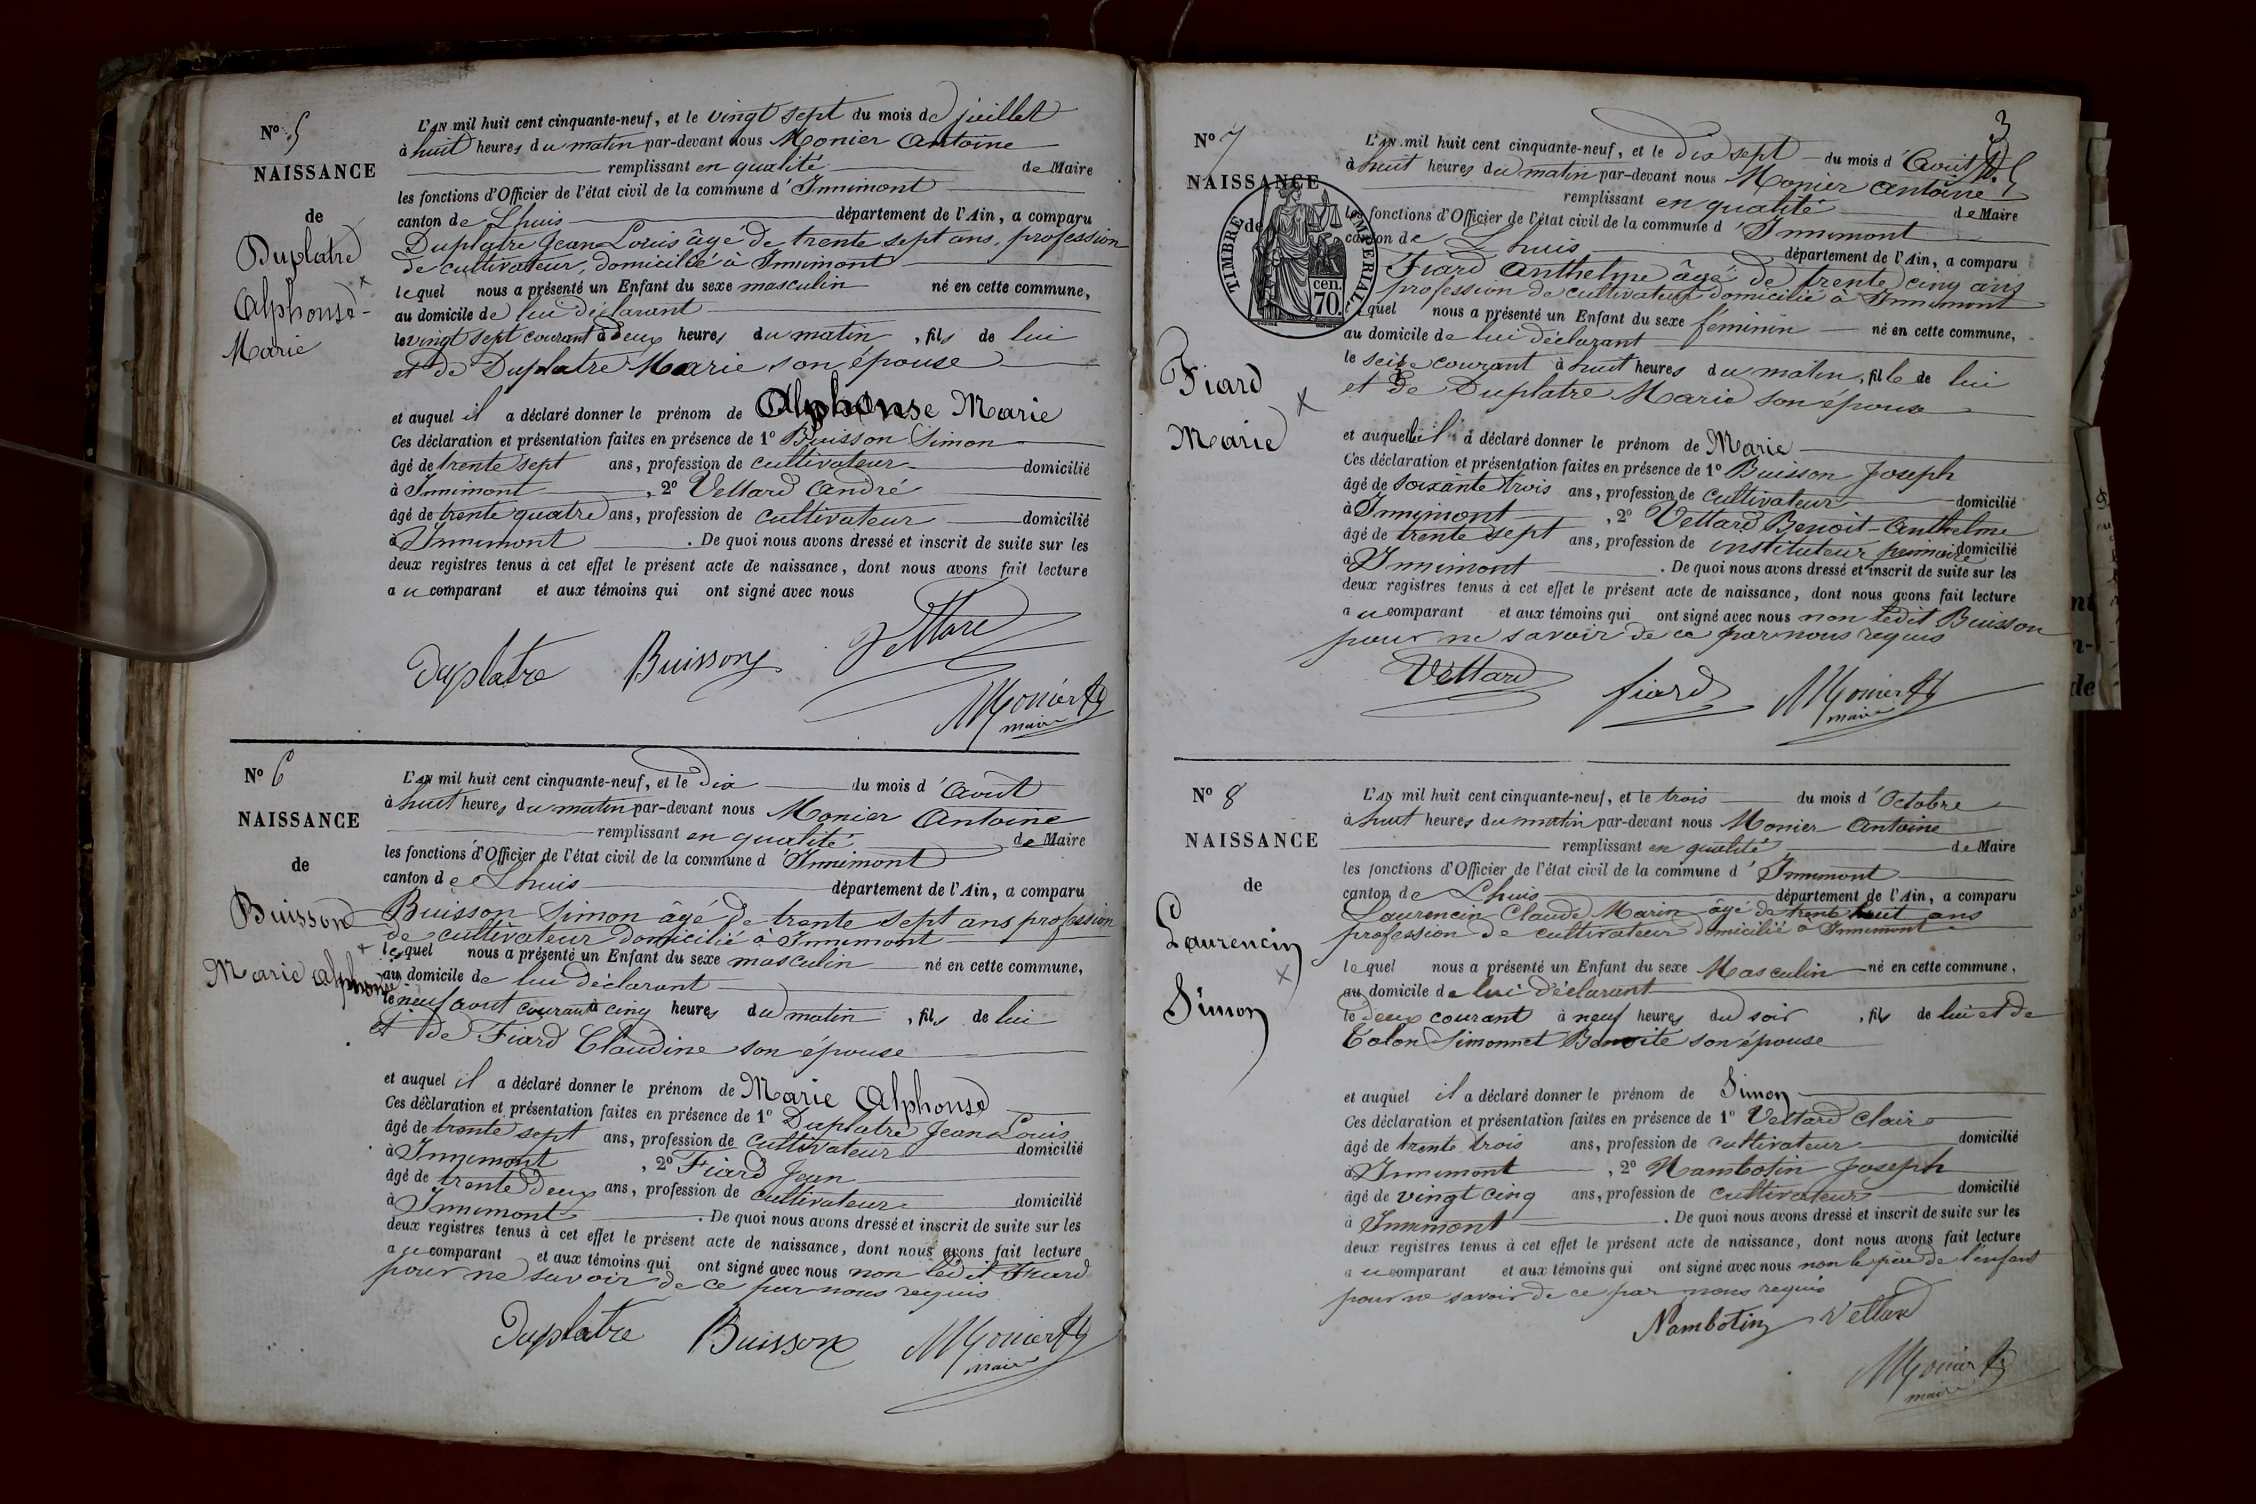 N° 5
NAISSANCE
de
Duplatre
Alphonse-
Marie
L'AN mil huit cent cinquante-neuf, et le vingt sept du mois de juillet
à huit heures du matin par-devant nous Monier Antoine
remplissant en qualité de Maire
les fonctions d'Officier de l'état civil de la commune d'Innimont
canton de Lhuis département de l'Ain, a comparu
Duplatre Jean Louis âgé de trente sept ans, profession
de cultivateur, domicilié à Innimont
lequel nous a présenté un Enfant du sexe masculin né en cette commune,
au domicile de lui déclarant
le vingt sept courant à deux heures du matin, fils de lui
et de Duplatre Marie son épouse
et auquel il a déclaré donner le prénom de Alphonse Marie
Ces déclaration et présentation faites en présence de 1° Buisson Simon
âgé de trente sept ans, profession de cultivateur domicilié
à Innimont, 2° Vettard André
âgé de trente quatre ans, profession de cultivateur domicilié
à Innimont. De quoi nous avons dressé et inscrit de suite sur les
deux registres tenus à cet effet le présent acte de naissance, dont nous avons fait lecture
au comparant et aux témoins qui ont signé avec nous
Duplatre Buisson Vettard
Monier
maire
N° 6
NAISSANCE
de
Buisson
Marie Alphonse
L'AN mil huit cent cinquante-neuf, et le dix du mois d'Aout
à huit heures du matin par-devant nous Monier Antoine
remplissant en qualité de Maire
les fonctions d'Officier de l'état civil de la commune d'Innimont
canton de Lhuis département de l'Ain, a comparu
Buisson Simon âgé de trente sept ans profession
de cultivateur domicilié à Innimont
lequel nous a présenté un Enfant du sexe masculin né en cette commune,
au domicile de lui déclarant
le neuf aout courant à cinq heures du matin, fils de lui
et de Fiard Claudine son épouse
et auquel il a déclaré donner le prénom de Marie Alphonse
Ces déclaration et présentation faites en présence de 1° Duplatre Jean Louis
âgé de trente sept ans, profession de cultivateur domicilié
à Innimont, 2° Fiard Jean
âgé de trente deux ans, profession de cultivateur domicilié
à Innimont. De quoi nous avons dressé et inscrit de suite sur les
deux registres tenus à cet effet le présent acte de naissance, dont nous avons fait lecture
au comparant et aux témoins qui ont signé avec nous non ledit Fiard
pour ne savoir de ce par nous requis
Duplatre Buisson Monier
maire
3
N° 7
NAISSANCE
de
TIMBRE IMPERIAL
70 cen.
Fiard
Marie
L'AN mil huit cent cinquante-neuf, et le dix sept du mois d'Aout
à huit heures du matin par-devant nous Monier Antoine
remplissant en qualité de Maire
les fonctions d'Officier de l'état civil de la commune d'Innimont
canton de Lhuis département de l'Ain, a comparu
Fiard Anthelme âgé de trente cinq ans
profession de cultivateur domicilié à Innimont
lequel nous a présenté un Enfant du sexe féminin né en cette commune,
au domicile de lui déclarant
le seize courant à huit heures du matin, fille de lui
et de Duplatre Marie son épouse
et auquel il a déclaré donner le prénom de Marie
Ces déclaration et présentation faites en présence de 1° Buisson Joseph
âgé de soixante trois ans, profession de cultivateur domicilié
à Innimont, 2° Vettard Benoit-Anthelme
âgé de trente sept ans, profession de instituteur primaire domicilié
à Innimont. De quoi nous avons dressé et inscrit de suite sur les
deux registres tenus à cet effet le présent acte de naissance, dont nous avons fait lecture
au comparant et aux témoins qui ont signé avec nous non ledit Buisson
pour ne savoir de ce par nous requis
Vettard fiard Monier
maire
N° 8
NAISSANCE
de
Laurencin
Simon
L'AN mil huit cent cinquante-neuf, et le trois du mois d'Octobre
à huit heures du matin par-devant nous Monier Antoine
remplissant en qualité de Maire
les fonctions d'Officier de l'état civil de la commune d'Innimont
canton de Lhuis département de l'Ain, a comparu
Laurencin Claude Marin âgé de trente huit ans
profession de cultivateur domicilié à Innimont
lequel nous a présenté un Enfant du sexe Masculin né en cette commune,
au domicile de lui déclarant
le deux courant à neuf heures du soir, fils de lui et de
Colon Simonnet Benoite son épouse
et auquel il a déclaré donner le prénom de Simon
Ces déclaration et présentation faites en présence de 1° Vettard Clair
âgé de trente trois ans, profession de cultivateur domicilié
à Innimont, 2° Nambotin Joseph
âgé de vingt cinq ans, profession de cultivateur domicilié
à Innimont. De quoi nous avons dressé et inscrit de suite sur les
deux registres tenus à cet effet le présent acte de naissance, dont nous avons fait lecture
au comparant et aux témoins qui ont signé avec nous non le père de l'enfant
pour ne savoir de ce par nous requis
Nambotin Vettard
Monier
maire